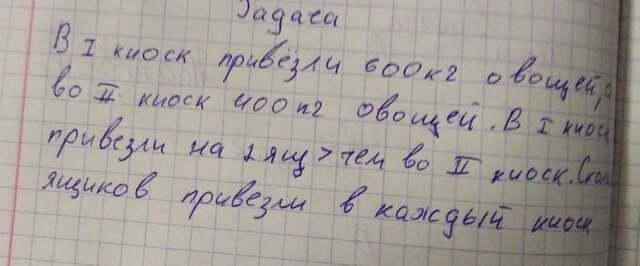 Задача
В I киоск привезли 600 кг овощей, а
во II киоск 400 кг овощей. В I киоск
привезли на 2 ящ > чем во II киоск.
ящиков привезли в каждый киоск